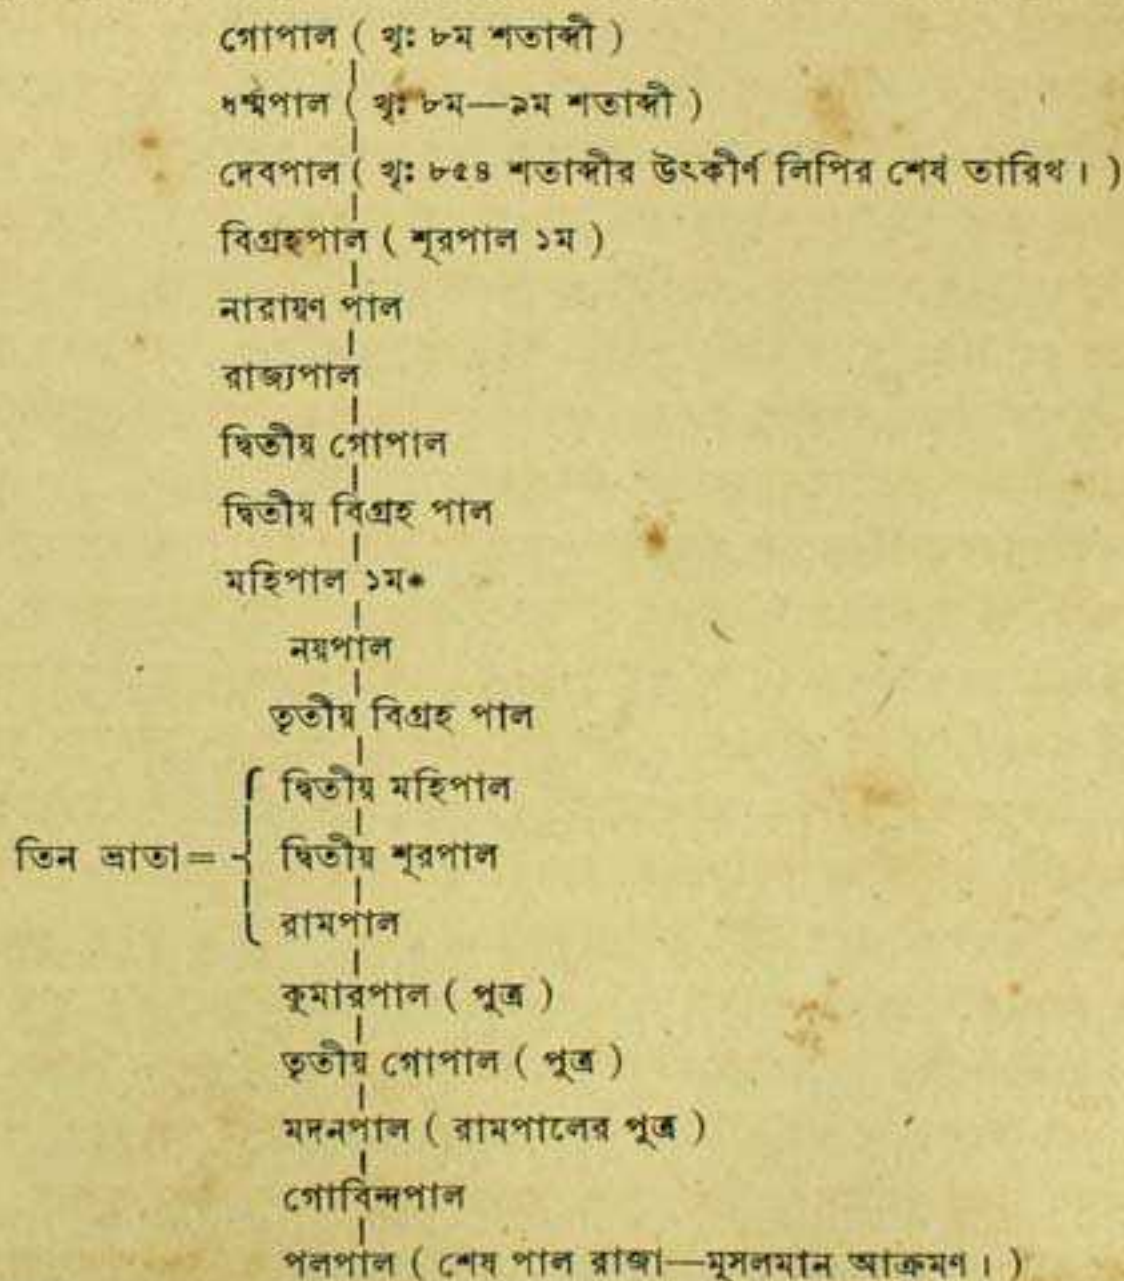 গোপাল ( খৃঃ ৮ম শতাব্দী )
ধর্ম্মপাল ( খৃঃ ৮ম—৯ম শতাব্দী )
দেবপাল ( খৃঃ ৮৫৪ শতাব্দীর উৎকীর্ণ লিপির শেষ তারিখ। )
বিগ্রহপাল ( শূরপাল ১ম )
নারায়ণ পাল
রাজ্যপাল
দ্বিতীয় গোপাল
দ্বিতীয় বিগ্রহ পাল
মহিপাল ১ম*
নয়পাল
তৃতীয় বিগ্রহ পাল
দ্বিতীয় মহিপাল
তিন ভ্রাতা= { দ্বিতীয় শূরপাল
রামপাল
কুমারপাল ( পুত্র )
তৃতীয় গোপাল ( পুত্র )
মদনপাল ( রামপালের পুত্র )
গোবিন্দপাল
পলপাল ( শেষ পাল রাজা—মুসলমান আক্রমণ। )